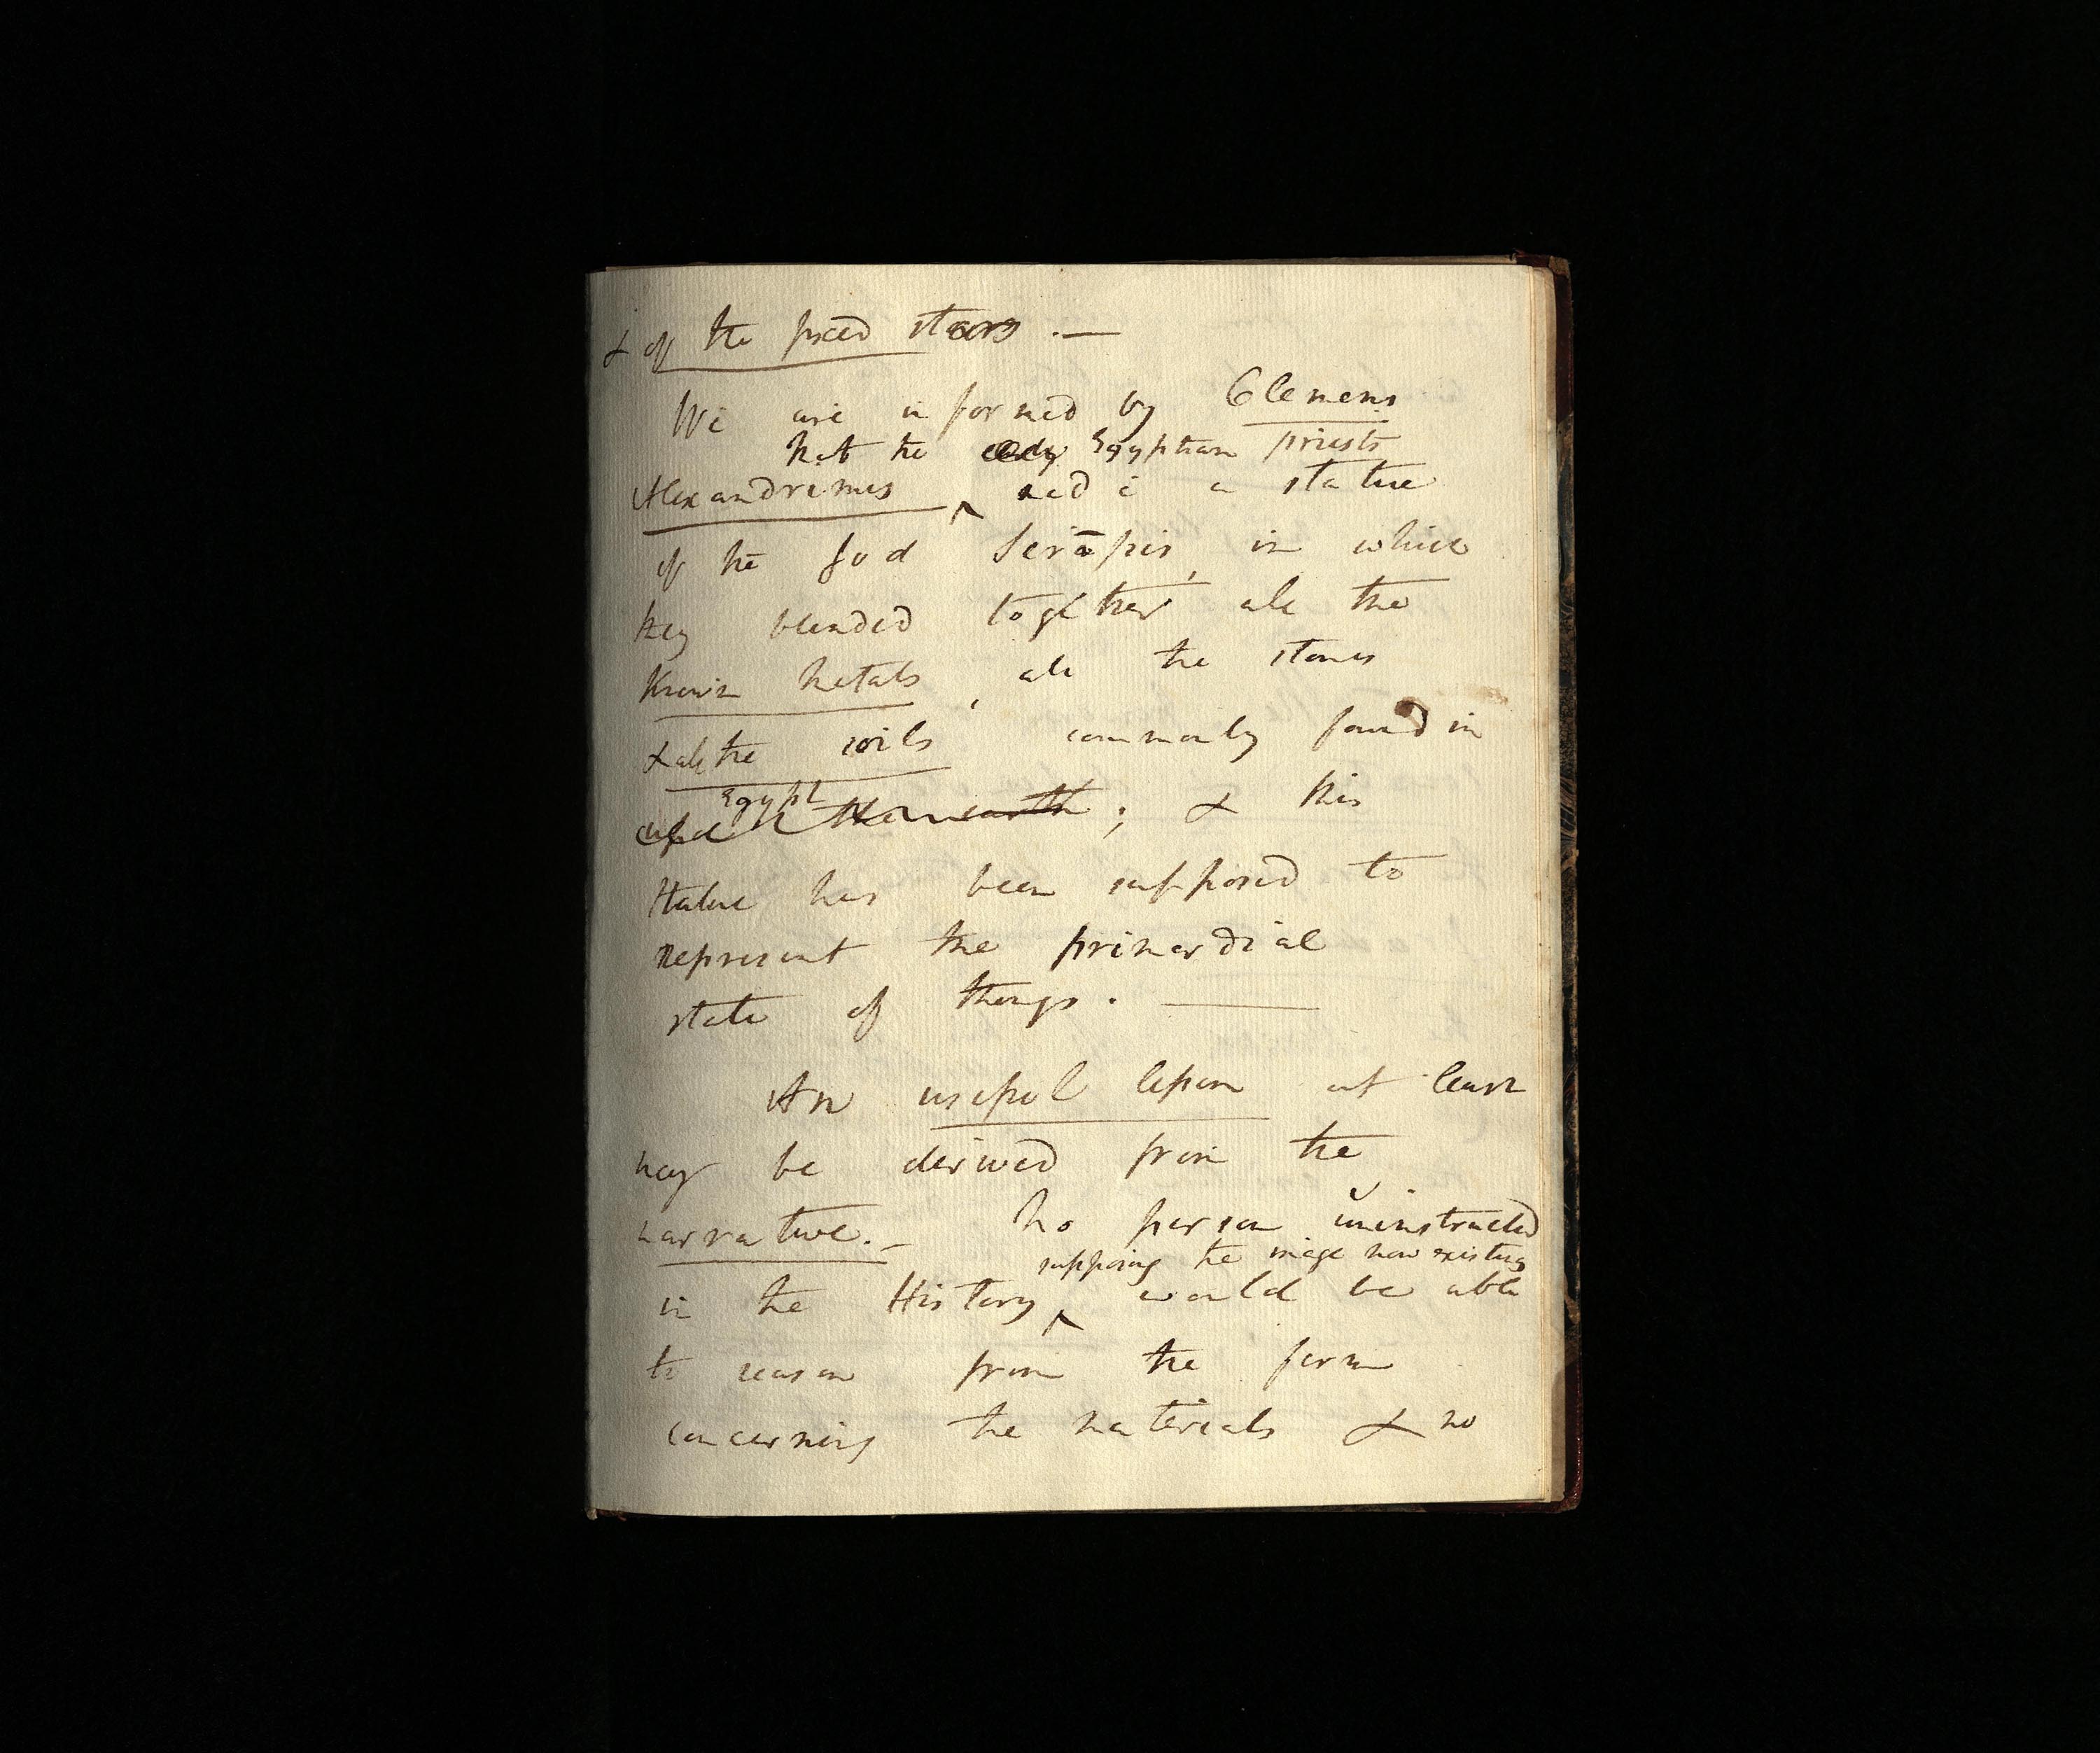 & of the fixed stars. —
We are informed by Clemens
that the early Egyptian priests
Alexandrinus ^ made a statue
of the God Serāpis, in which
they blended together all the
Known metals, all the stones
& all the soils commonly found in
Egypt
the earth; & this
statue has been supposed to
represent the primordial
state of things. —
An useful lesson at least
may be derived from the
narrative. — No person uninstructed
supposing the image now existing
in the History ^ would be able
to reason from the form
concerning the materials & no